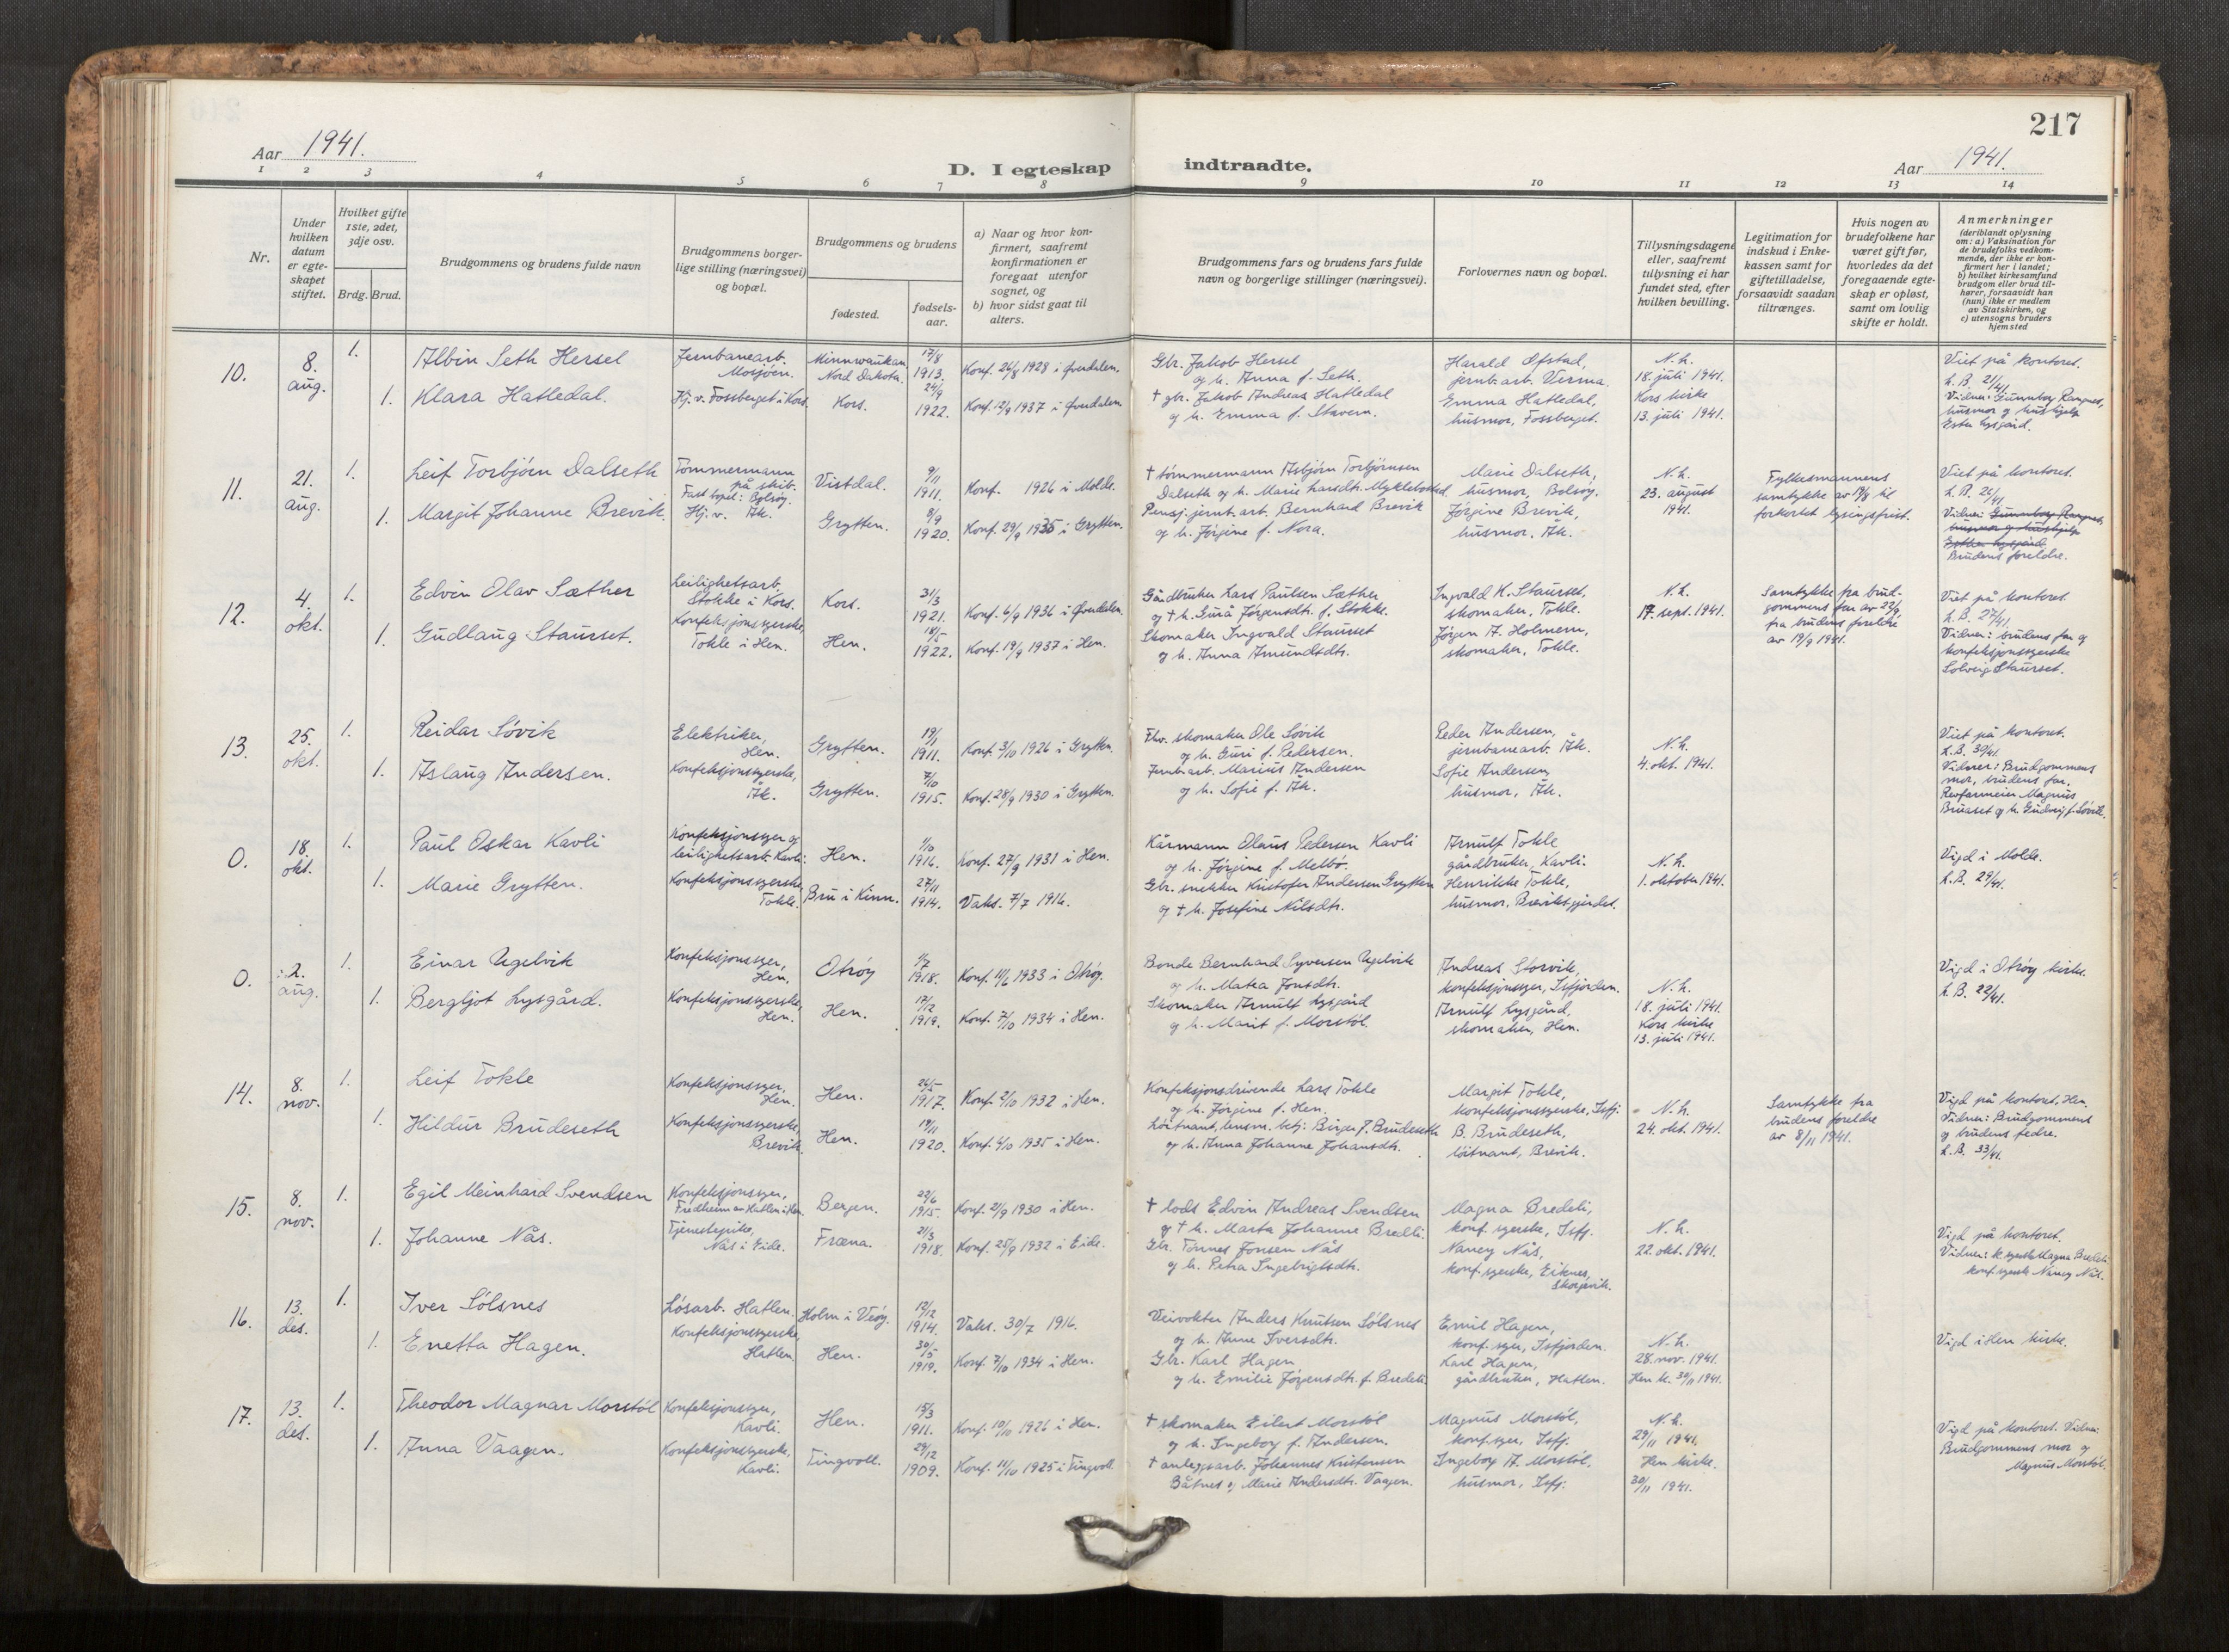 217
Aar 1941.
D. I egteskap indtraadte.
Aar 1941.
1 2 3 4 5 6 7 8 9 10 11 12 13 14
Nr.
Under hvilken datum er egteskapet stiftet.
Hvilket gifte 1ste, 2det, 3dje osv.
Brdg. Brud.
Brudgommens og brudens fulde navn
Brudgommens borgerlige stilling (næringsvei) og bopæl.
Brudgommens og brudens
fødested.
fødselsaar.
a) Naar og hvor konfirmert, saafremt konfirmationen er foregaat utenfor sognet, og
b) hvor sidst gaat til alters.
Brudgommens fars og brudens fars fulde navn og borgerlige stillinger (næringsvei).
Forlovernes navn og bopæl.
Tillysningsdagene eller, saafremt tillysning ei har fundet sted, efter hvilken bevilling.
Legitimation for indskud i Enkekassen samt for giftetilladelse, forsaavidt saadan tiltrænges.
Hvis nogen av brudefolkene har været gift før, hvorledes da det foregaaende egteskap er opløst, samt om lovlig skifte er holdt.
Anmerkninger (deriblandt oplysning om: a) Vaksination for de brudefolks vedkommende, der ikke er konfirmert her i landet; b) hvilket kirkesamfund brudgom eller brud tilhører, forsaavidt han (hun) ikke er medlem av Statskirken, og c) utensogns bruders hjemsted
10. 8. aug. 1. Albin Seth Hersel
Jernbanearb. Mosjøen.
Minnwaukan Nord Dakota.
17/8 1913.
Konf. 26/8 1928 i Øverdalen.
Gbr. Jakob Hersel
og h. Anna f. Seth.
Harald Øfstad,
jernb.arb. Verma.
N.h.
18. juli 1941.
Viet på kontoret.
L.B. 21/41
1. Klara Hatledal.
Hj. v. Fossberget i Kors.
Kors.
24/9 1922.
Konf. 12/9 1937 i Øverdalen.
† gbr. Jakob Andreas Hatledal
og h. Emma f. Stavem.
Emma Hatledal,
husmor, Fossberget.
Kors kirke
13. juli 1941.
Vidner: Gunnbor Rangnes,
husmor og hushjelp
Ester Lysgård.
11. 21. aug. 1. Leif Torbjørn Dalseth
Tømmermann på skib.
Fast bopel: Bolsøy.
Vistdal.
9/11 1911.
Konf. 1926 i Molde.
† tømmermann Asbjørn Torbjørnsen
Dalseth og h. Marie Larsdtr. Myklebostad.
Marie Dalseth,
husmor, Bolsøy.
N.h.
23. august
1941.
Fylkesmannens
samtykke av 19/8 til
forkortet lysingsfrist.
Viet på kontoret.
L.B. 26/41
1. Margit Johanne Brevik.
Hj. v. Åk.
Grytten.
8/9 1920.
Konf. 29/9 1935 i Grytten.
Pensj. jernb.arb. Bernhard Brevik
og h. Jørgine f. Nora.
Jørgine Brevik,
husmor, Åk.
Vidner: Gunnbor Rangnes,
husmor og hushjelp
Esther Lysgård.
Brudens foreldre.
12. 4. okt. 1. Edvin Olav Sæther
Leilighetsarb.
Stokke i Kors.
Kors.
31/3 1921.
Konf. 6/9 1936 i Øverdalen.
Gårdbruker Lars Paulsen Sæther
og † h. Gurå Jørgensdtr. f. Stokke.
Ingvald K. Staurset,
skomaker, Tokle.
N.h.
17. sept. 1941.
Samtykke fra brud-
gommens far av 22/9,
fra brudens foreldre
av 19/9 1941.
Viet på kontoret.
L.B. 27/41.
1. Gudlaug Staurset.
Konfeksjonssyerske,
Tokle i Hen.
Hen.
18/5 1922.
Konf. 19/9 1937 i Hen.
Skomaker Ingvald Staurset
og h. Anna Amundsdtr.
Jørgen A. Holmem,
skomaker, Tokle.
Vidner: brudens far og
konfeksjonssyerske
Solveig Staurset.
13. 25. okt. 1. Reidar Søvik
Elektriker, Hen.
Grytten.
19/1 1911.
Konf. 3/10 1926 i Grytten.
Fhv. skomaker Ole Søvik
og h. Guri f. Pedersen.
Peder Andersen,
jernbanearb. Åk.
N.h.
4. okt. 1941.
Viet på kontoret.
L.B. 30/41.
1. Aslaug Andersen.
Konfeksjonssyerske, Åk.
Grytten.
7/10 1915.
Konf. 28/9 1930 i Grytten.
Jernb.arb. Marius Andersen
og h. Sofie f. Åk.
Sofie Andersen,
husmor, Åk.
Vidner: Brudgommens
mor, brudens far.
Revfarmeier Magnus
Bruaset og h. Gudveig f. Søvik.
0. 18. okt. 1. Paul Oskar Kavli
Konfeksjonssyer og
leilighetsarb. Kavli.
Hen.
1/10 1916.
Konf. 27/9 1931 i Hen.
Kårmann Olaus Pedersen Kavli
og h. Jørgine f. Melbø.
Arnulf Tokle
gårdbruker, Kavli.
N.h.
1. oktober 1941.
Vigd i Molde.
L.B. 29/41.
1. Marie Grytten.
Konfeksjonssyerske, Tokle.
Bru i Kinn.
27/11 1914.
Vaks. 7/7 1916.
Gbr. snekker Kristofer Andersen Grytten
og † h. Josefine Nilsdtr.
Henrikke Tokle,
husmor, Breviksgjerdet.
0. 2. aug. 1. Einar Ugelvik
Konfeksjonssyer, Hen.
Otrøy
1/7 1918.
Konf. 11/6 1933 i Otrøy.
Bonde Bernhard Syversen Ugelvik
og h. Matea Jonsdtr.
Andreas Storvik,
konfeksjonssyer, Isfjorden.
N.h.
18. juli 1941.
Vigd i Otrøy kirke.
L.B. 22/41.
1. Bergljot Lysgård.
Konfeksjonssyerske, Hen.
Hen.
17/12 1919.
Konf. 7/10 1934 i Hen.
Skomaker Arnulf Lysgård
og h. Marit f. Morstøl.
Arnulf Lysgård,
skomaker, Hen.
Kors kirke
13. juli 1941.
14. 8. nov. 1. Leif Tokle
Konfeksjonssyer, Hen.
Hen.
26/5 1917.
Konf. 2/10 1932 i Hen.
Konfeksjonsdrivende Lars Tokle
og h. Jørgine f. Hen.
Margit Tokle,
konfeksjonssyerske, Isfj.
N.h.
24. okt. 1941.
Samtykke fra
brudens foreldre
av 8/11 1941.
Vigd på kontoret, Hen.
Vidner: Brudgommens
og brudens fedre.
L.B. 33/41.
1. Hildur Brudeseth
Konfeksjonssyerske, Brevik.
Hen.
19/11 1920.
Konf. 6/10 1935 i Hen.
Løitnant, lensm. betj. Birger P. Brudeseth
og h. Anna Johanne Johansdtr.
B. Brudeseth,
løitnant, Brevik.
15. 8. nov. 1. Egil Meinhard Svendsen
Konfeksjonssyer,
Fridheim av Hatlen i Hen.
Bergen.
22/6 1915.
Konf. 21/9 1930 i Hen.
† lods Edvin Andreas Svendsen
og † h. Marta Johanne Bredli.
Magna Bredeli,
konf. syerske, Isfj.
N.h.
22. okt. 1941.
Vigd på kontoret.
Vidner: k. syerske Magna Bredeli
konf. syersk Nancy Nås.
1. Johanne Nås.
Tjenestepike,
Nås i Eide.
Fræna.
21/3 1918.
Konf. 25/9 1932 i Eide.
Gbr. Tønnes Jonsen Nås
og h. Petra Ingebrigtsdtr.
Nancy Nås,
konf. syerske, Eiknes,
Skorgevik.
16. 13. des. 1. Iver Sølsnes
Løsarb. Hatlen.
Holm i Veøy.
12/12 1914.
Vaks. 30/7 1916.
Veivokter Anders Knutsen Sølsnes
og h. Anne Iversdtr.
Emil Hagen,
konf. syer, Isfjorden.
N.h.
28. nov. 1941.
Vigd i Hen kirke.
1. Enetta Hagen.
Konfeksjonssyerske, Hatlen.
Hen.
30/5 1919.
Konf. 7/10 1934 i Hen.
Gbr. Karl Hagen
og h. Emilie Jørgensdtr. f. Bredeli.
Karl Hagen,
gårdbruker, Hatlen.
Hen k. 30/11 1941.
17. 13. des. 1. Theodor Magnar Morstøl
Konfeksjonssyer, Kavli.
Hen.
15/3 1911.
Konf. 10/10 1926 i Hen.
† skomaker Eilert Morstøl
og h. Ingeborg f. Andersen.
Magnus Morstøl,
konf. syer, Isfj.
N.h.
29/11 1941.
Vigd på kontoret. Vidner:
Brudgommens mor og
Magnus Morstøl.
1. Anna Vaagen.
Konfeksjonssyerske, Kavli.
Tingvoll.
29/12 1909.
Konf. 11/10 1925 i Tingvoll.
† anleggsarb. Johannes Kristensen
Båtnes og Marie Andersdtr. Vaagen.
Ingeborg A. Morstøl,
husmor, Isfj.
Hen kirke.
30/11 1941.